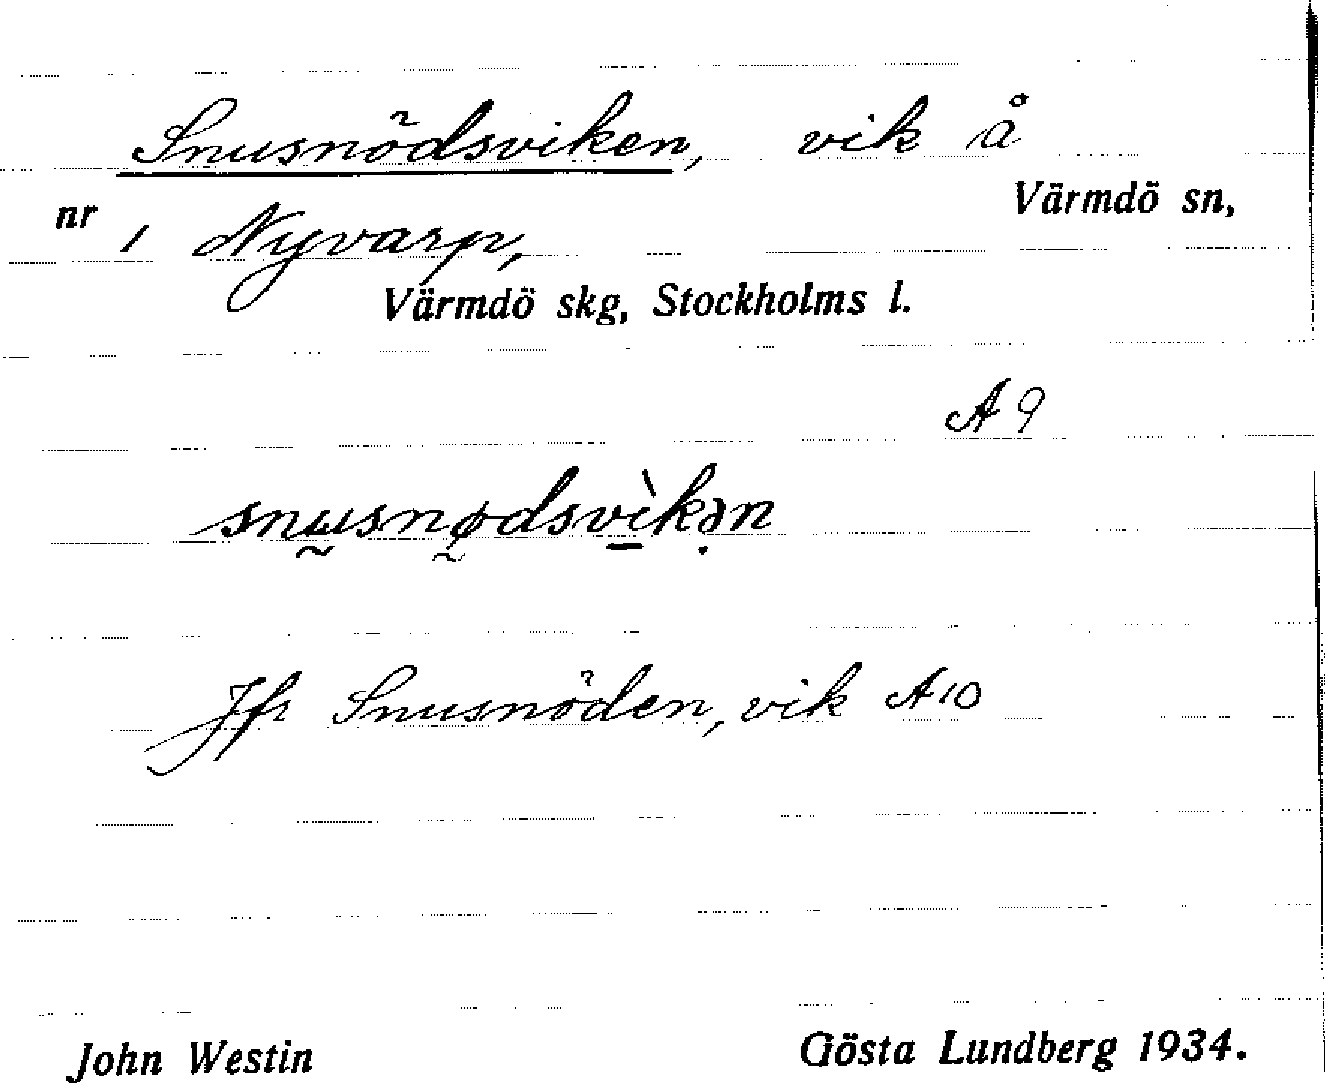 Snusnödsviken, vik å
nr 1 Nyvarp, Värmdö sn,
Värmdö skg, Stockholms l.
A 9
snusnødsvìkən
Jfr Snusnöden, vik A 10
John Westin Gösta Lundberg 1934.